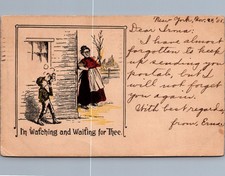 New York, Nov. 28
Dear Irma:
I have almost
forgotten to keep
up sending you
postals, but I
will not forget
you again.
With best regards
from, Erna
I'm Watching and Waiting for Thee.